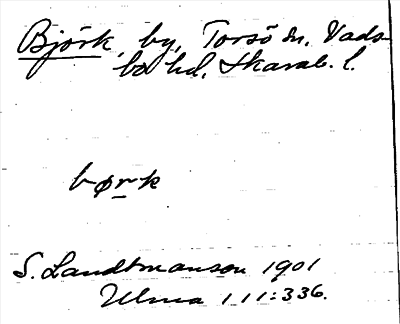 Björk, by, Torsö sn, Vads-
bo hd, Skarab. l.
børk
S. Landtmanson 1901
Ulma 111:336.